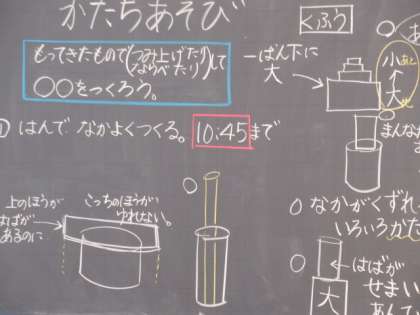 かたちあそび
もってきたもので(つみ上げたり ならべたり)して
○○をつくろう。
① はんで なかよくつくる。 10:45まで
上のほうが
はばが
あるのに
こっちのほうが
ゆれない。
くふう
一ばん下に
大
小
大
まんな
なかがくずれ
いろいろかた
はばが
せまい
大